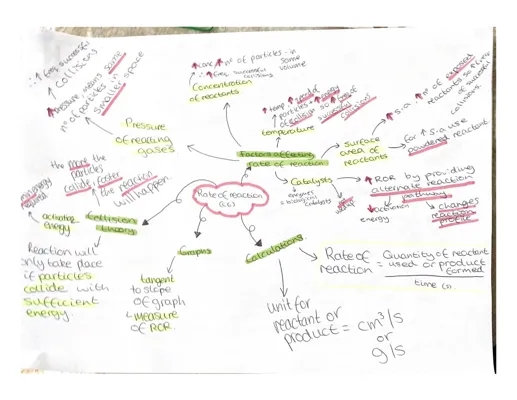 ∴ ↑ freq. successful
collisions
↑ Pressure means same
n° of particles in
smaller space
Pressure
of reacting
gases
↑ conc ↑ n° of particles in
same
volume
∴ ↑ freq. successful
collisions
Concentration
of reactants
↑ temp ↑ speed of
particles
temperature
↑ s.a. ↑ n° of exposed
reactants so ↑ freq
of successful
collisions.
surface
area of
reactants
for ↑ s.a use
powdered reactant
Factors affecting
rate of reaction
Catalysts
enzymes
= biological
catalysts
↑ ROR by providing
alternate reaction
pathway
↓ activation
energy
changes
reaction
profile
Rate of reaction
the more the
particles
collide, faster
the reaction
will happen
min energy
required
activation
energy
Collision
theory
Reaction will
only take place
if particles
collide with
sufficient
energy.
Graphs
tangent
to slope
of graph
measure
of ROR.
Calculations
Rate of
reaction = Quantity of reactant
used or product
formed
time (s)
unit for
reactant or
product = cm³/s
or
g/s